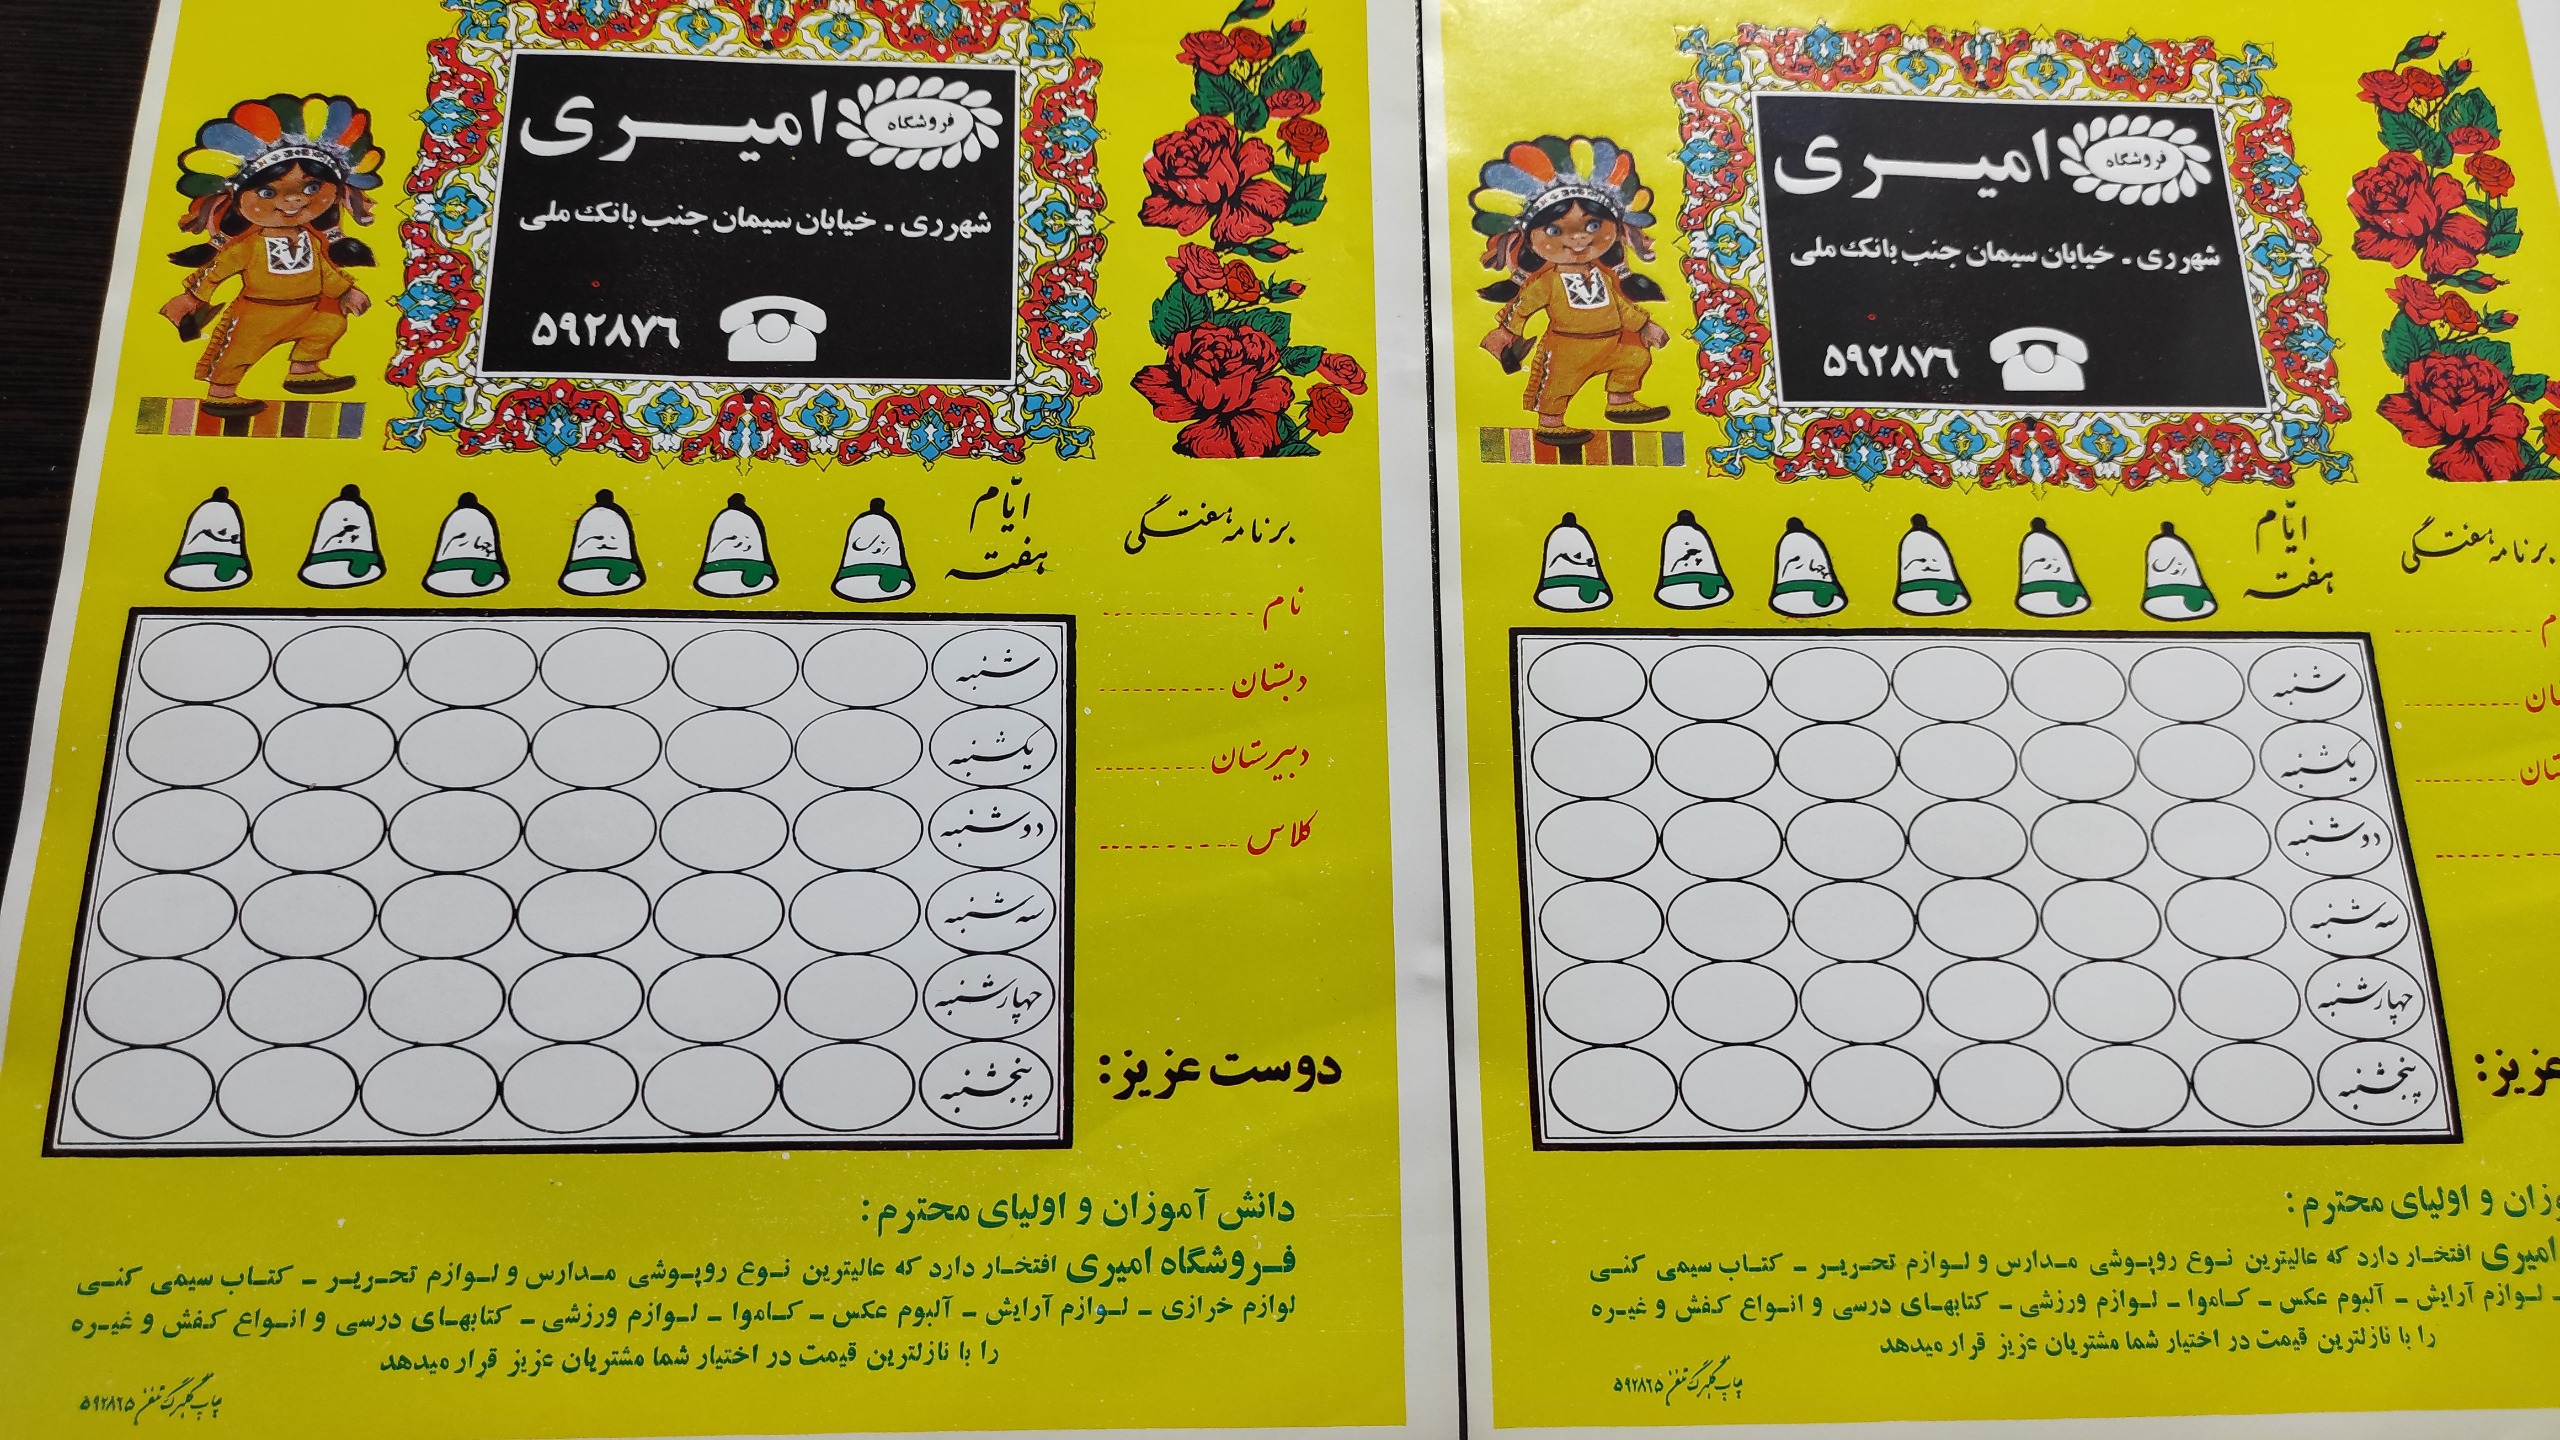 فروشگاه امیری
شهرری ـ خیابان سیمان جنب بانک ملی
۵۹۲۸۷۶
برنامه هفتگی
ایّام هفته
اول
دوم
سوم
چهارم
پنجم
ششم
نام
دبستان
دبیرستان
کلاس
شنبه
یکشنبه
دوشنبه
سه شنبه
چهارشنبه
پنجشنبه
دوست عزیز:
دانش آموزان و اولیای محترم:
فروشگاه امیری افتخار دارد که عالیترین نوع روپوشی مدارس و لوازم تحریر ـ کتاب سیمی کنی
لوازم خرازی ـ لوازم آرایش ـ آلبوم عکس ـ کاموا ـ لوازم ورزشی ـ کتابهای درسی و انواع کفش و غیره
را با نازلترین قیمت در اختیار شما مشتریان عزیز قرار میدهد
چاپ گلبرگ تلفن ۵۹۲۸۲۵
فروشگاه امیری
شهرری ـ خیابان سیمان جنب بانک ملی
۵۹۲۸۷۶
برنامه هفتگی
ایّام هفته
اول
دوم
سوم
چهارم
پنجم
ششم
شنبه
یکشنبه
دوشنبه
سه شنبه
چهارشنبه
پنجشنبه
عزیز:
و اولیای محترم:
امیری افتخار دارد که عالیترین نوع روپوشی مدارس و لوازم تحریر ـ کتاب سیمی کنی
ـ لوازم آرایش ـ آلبوم عکس ـ کاموا ـ لوازم ورزشی ـ کتابهای درسی و انواع کفش و غیره
را با نازلترین قیمت در اختیار شما مشتریان عزیز قرار میدهد
چاپ گلبرگ تلفن ۵۹۲۸۲۵